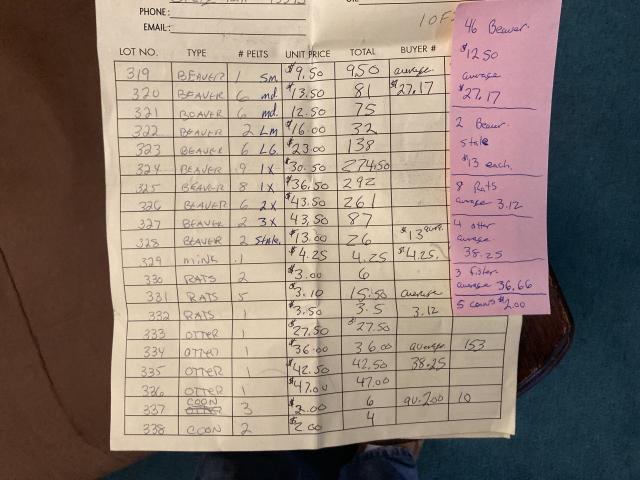 PHONE:
EMAIL:
1 OF
LOT NO. TYPE # PELTS UNIT PRICE TOTAL BUYER #
319 BEAVER 1 sm $9.50 9.50 average
320 BEAVER 6 md. $13.50 81 $27.17
321 BEAVER 6 md. 12.50 75
322 BEAVER 2 LM $16.00 32
323 BEAVER 6 LG. $23.00 138
324 BEAVER 9 1X $30.50 274.50
325 BEAVER 8 1X $36.50 292
326 BEAVER 6 2X $43.50 261
327 BEAVER 2 3X 43.50 87
328 BEAVER 2 Stale. $13.00 26 $13
329 MINK .1 $4.25 4.25 $4.25.
330 RATS 2 $3.00 6
331 RATS 5 3.10 15.50 average
332 RATS 1 $3.50 3.5 3.12
333 OTTER 1 $27.50 $27.50
334 OTTER 1 $36.00 36.00 average 153
335 OTTER 1 $42.50 42.50 38.25
336 OTTER 1 $47.00 47.00
337 COON 3 $2.00 6 av. 2.00 10
338 COON 2 $2.00 4
46 Beaver
$12.50
average
$27.17
2 Beaver
stale
$13 each.
8 Rats
average 3.12
4 otter
average
38.25
3 fisher
average 36.66
5 coons $2.00